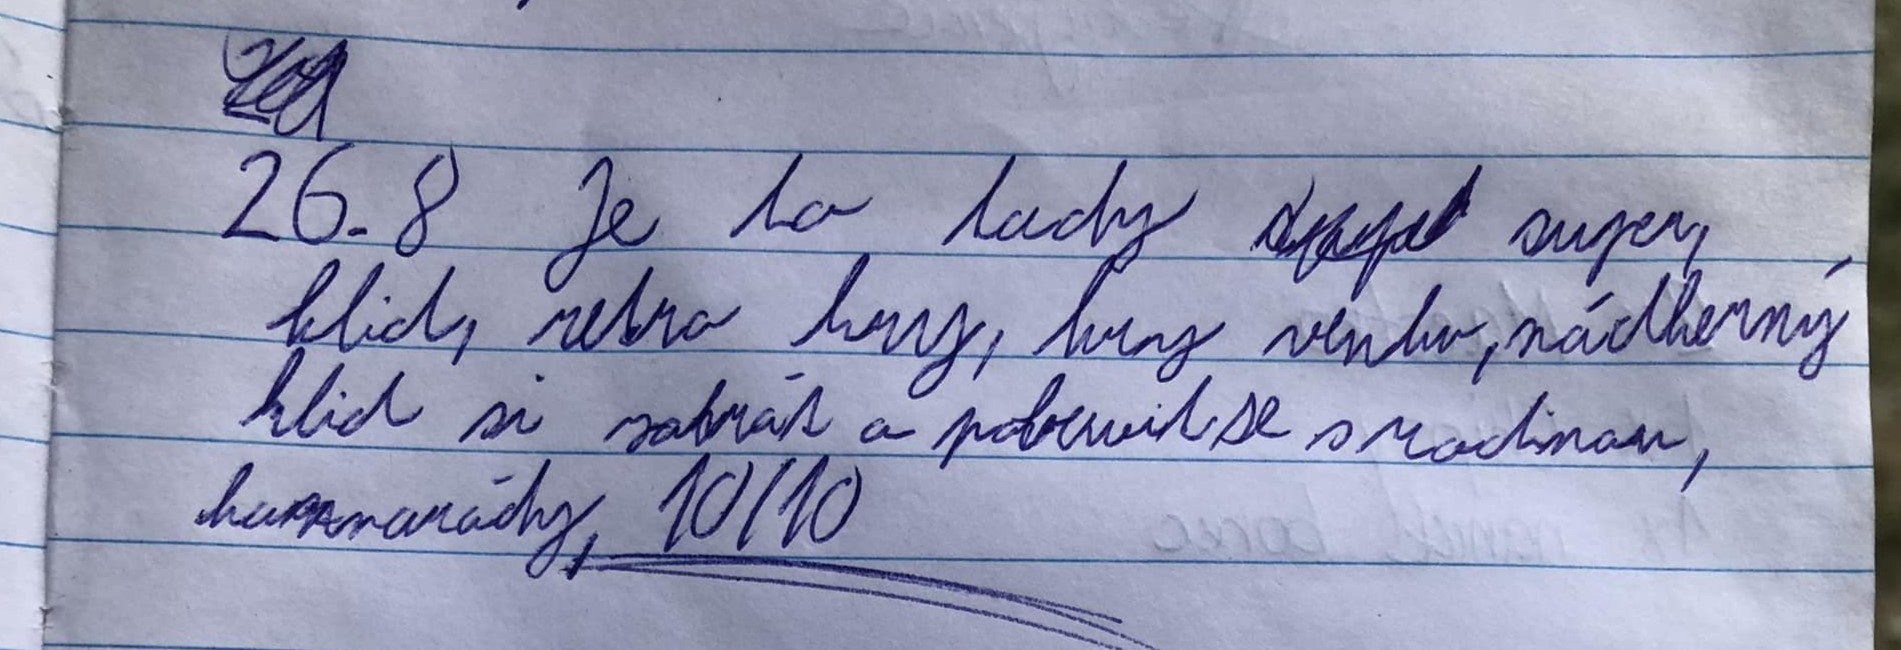 26.8 Je to tady super,
klid, retro hry, hry venku, nádherný
klid si zahrát a pobavit se s rodinou,
kamarády, 10/10